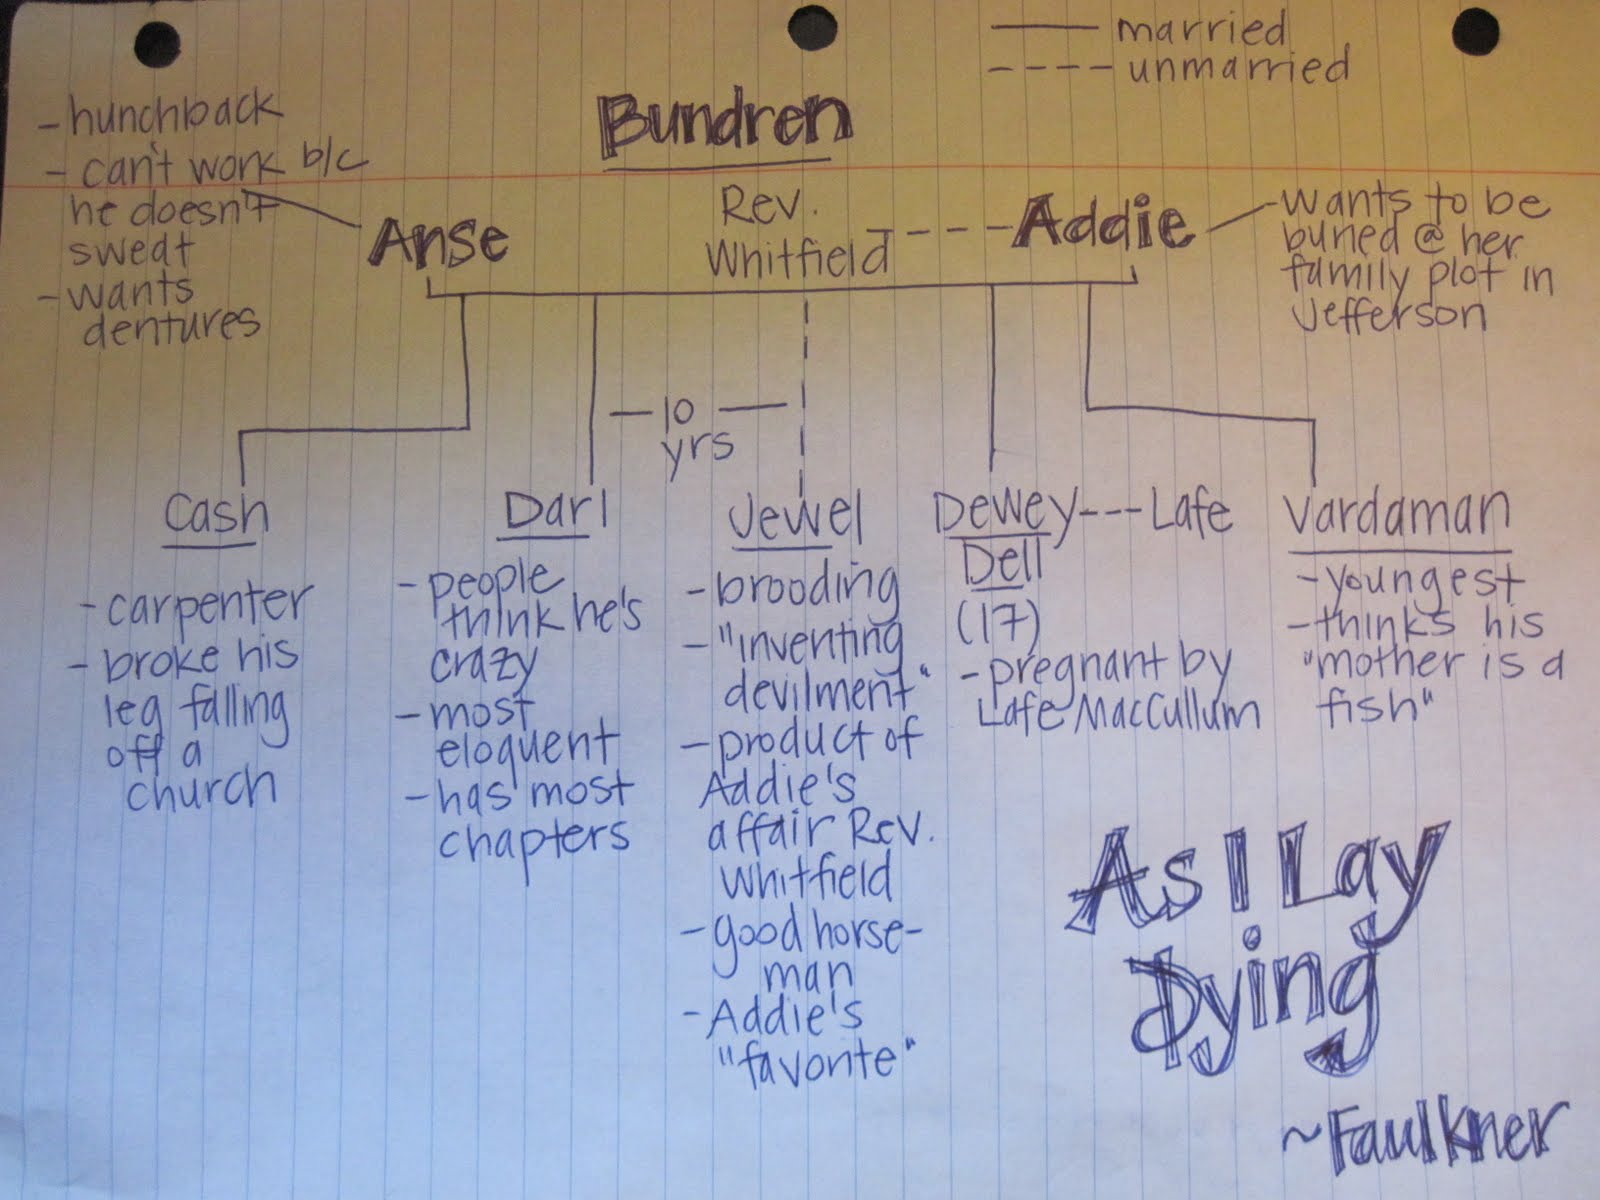 married
unmarried
Bundren
- hunchback
- can't work b/c
he doesn't
sweat
- wants
dentures
Anse
Rev.
Whitfield
Addie
wants to be
buried @ her
family plot in
Jefferson
10
yrs
Cash
- carpenter
- broke his
leg falling
off a
church
Darl
- people
think he's
crazy
- most
eloquent
- has most
chapters
Jewel
- brooding
- "inventing
devilment"
- product of
Addie's
affair Rev.
Whitfield
- good horse-
man
- Addie's
"favorite"
Dewey --- Lafe
Dell
(17)
- pregnant by
Lafe MacCullum
Vardaman
- youngest
- thinks his
"mother is a
fish"
As I Lay
Dying
~Faulkner